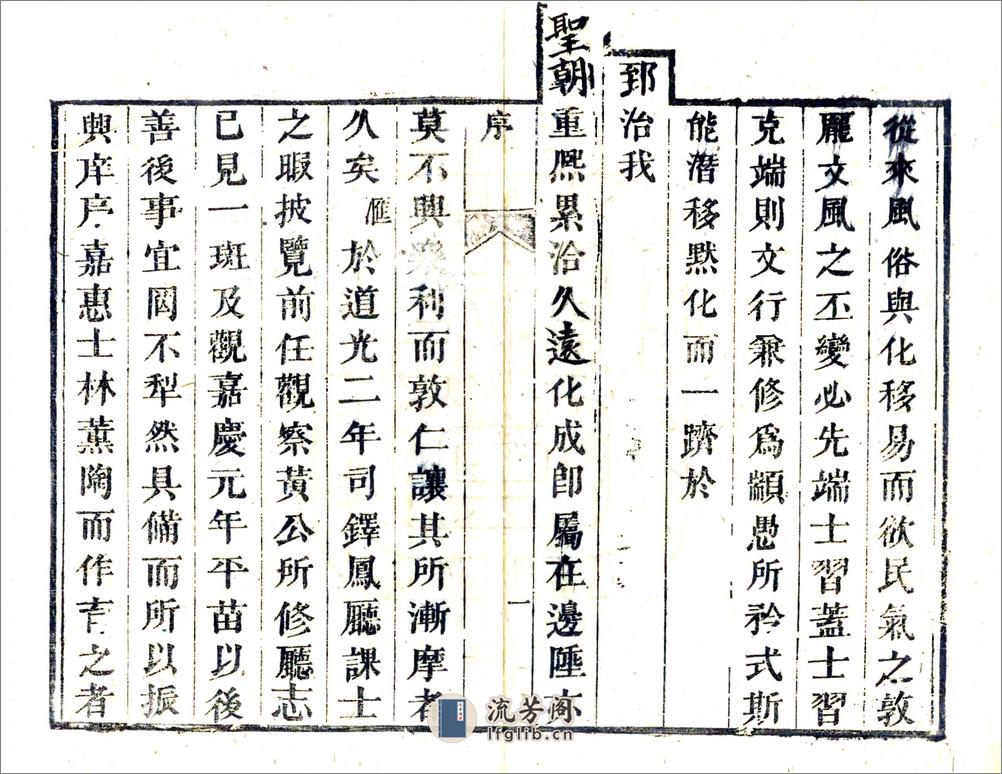 從來風俗與化移易而欲民氣之敦
龎文風之丕變必先端士習蓋士習
克端則文行兼修爲顓愚所矜式斯
能潛移默化而一躋於
郅治我
聖朝重熙累洽久遠化成卽屬在邊陲亦
序
一
莫不興樂利而敦仁讓其所漸摩者
久矣 於道光二年司鐸鳳廳課士
之暇披覽前任觀察黃公所修廳志
已見一斑及觀嘉慶元年平苗以後
善後事宜罔不犁然具備而所以振
興庠序嘉惠士林薰陶而作育之者
流芳阁
lfglib.cn